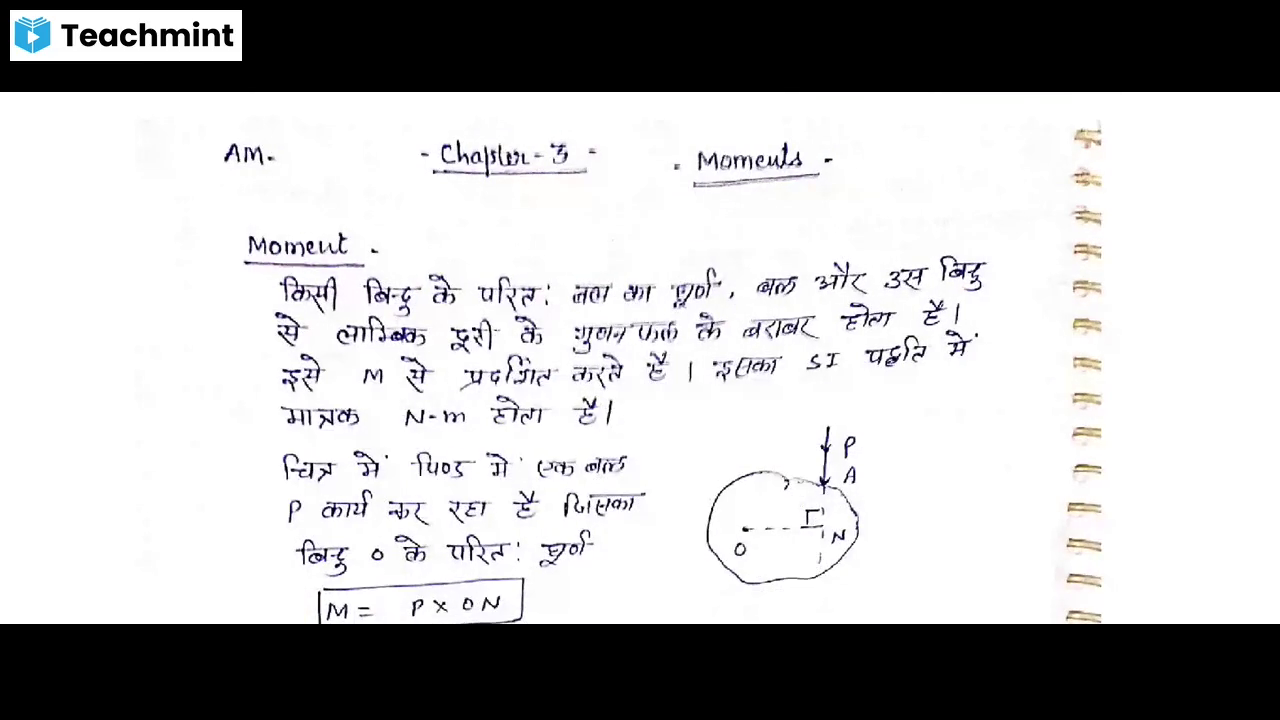 Teachmint
AM.
- Chapter - 3 -
. Moments -
Moment .
किसी बिन्दु के परित: बल का घूर्ण, बल और उस बिन्दु
से लाम्बिक दूरी के गुणनफल के बराबर होता है।
इसे M से प्रदर्शित करते है। इसका SI पद्धति में
मात्रक N-m होता है।
चित्र में पिण्ड में एक बल
P कार्य कर रहा है जिसका
बिन्दु O के परित: घूर्ण
M = P x ON
P
A
O
N